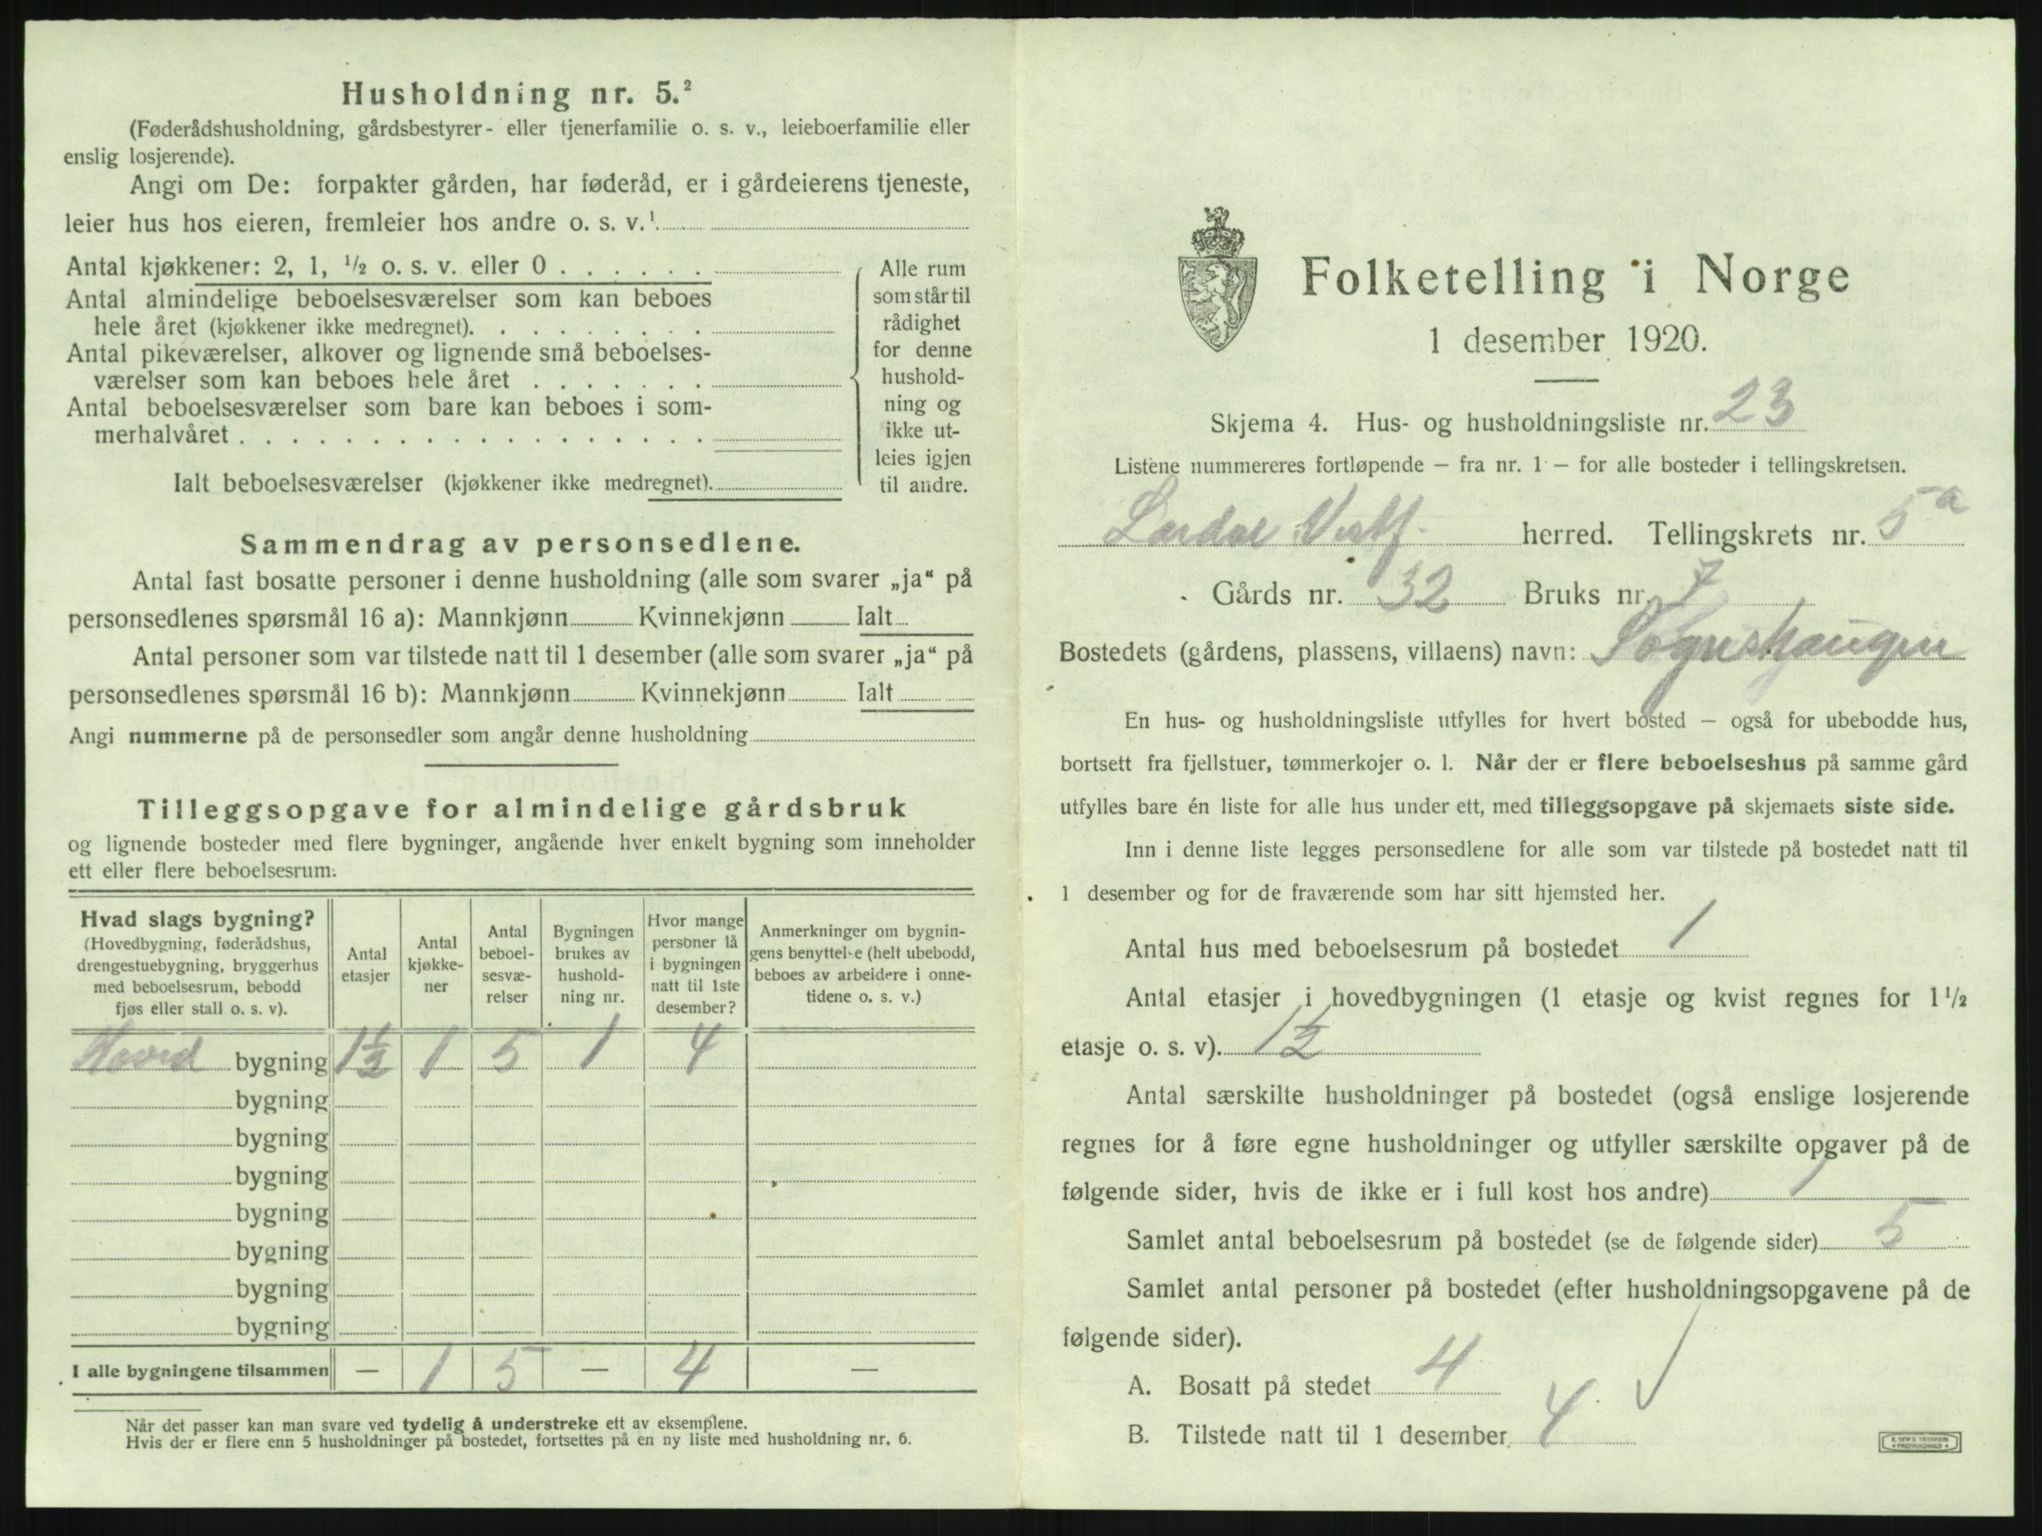 Husholdning nr. 5.²
(Føderådshusholdning, gårdsbestyrer- eller tjenerfamilie o. s. v., leieboerfamilie eller
enslig losjerende).
Angi om De: forpakter gården, har føderåd, er i gårdeierens tjeneste,
leier hus hos eieren, fremleier hos andre o. s. v.¹
Antal kjøkkener: 2, 1, ½ o. s. v. eller 0 . . . . . .
Antal almindelige beboelsesværelser som kan beboes
hele året (kjøkkener ikke medregnet). . . . . . . . .
Antal pikeværelser, alkover og lignende små beboelses-
værelser som kan beboes hele året . . . . . . .
Antal beboelsesværelser som bare kan beboes i som-
merhalvåret . . . . . . . . . . . . . . . . . .
Ialt beboelsesværelser (kjøkkener ikke medregnet).
Alle rum
som står til
rådighet
for denne
hushold-
ning og
ikke ut-
leies igjen
til andre.
Sammendrag av personsedlene.
Antal fast bosatte personer i denne husholdning (alle som svarer „ja“ på
personsedlenes spørsmål 16 a): Mannkjønn Kvinnekjønn Ialt
Antal personer som var tilstede natt til 1 desember (alle som svarer „ja“ på
personsedlenes spørsmål 16 b): Mannkjønn Kvinnekjønn Ialt
Angi nummerne på de personsedler som angår denne husholdning
Tilleggsopgave for almindelige gårdsbruk
og lignende bosteder med flere bygninger, angående hver enkelt bygning som inneholder
ett eller flere beboelsesrum.
Hvad slags bygning?
(Hovedbygning, føderådshus,
drengestuebygning, bryggerhus
med beboelsesrum, bebodd
fjøs eller stall o. s. v).
Antal
etasjer
Antal
kjøkke-
ner
Antal
beboel-
sesvæ-
relser
Bygningen
brukes av
hushold-
ning nr.
Hvor mange
personer lå
i bygningen
natt til 1ste
desember?
Anmerkninger om bygnin-
gens benyttelse (helt ubebodd,
beboes av arbeidere i onne-
tidene o. s. v.)
Hoved bygning 1½ 1 5 1 4
bygning
bygning
bygning
bygning
bygning
bygning
bygning
I alle bygningene tilsammen — 1 5 — 4 —
Når det passer kan man svare ved tydelig å understreke ett av eksemplene.
Hvis der er flere enn 5 husholdninger på bostedet, fortsettes på en ny liste med husholdning nr. 6.
Folketelling i Norge
1 desember 1920.
Skjema 4. Hus- og husholdningsliste nr. 23
Listene nummereres fortløpende — fra nr. 1 — for alle bosteder i tellingskretsen.
Lardal Vestf. herred. Tellingskrets nr. 5a
Gårds nr. 32 Bruks nr. 7
Bostedets (gårdens, plassens, villaens) navn: Sognshaugen
En hus- og husholdningsliste utfylles for hvert bosted — også for ubebodde hus,
bortsett fra fjellstuer, tømmerkojer o. l. Når der er flere beboelseshus på samme gård
utfylles bare én liste for alle hus under ett, med tilleggsopgave på skjemaets siste side.
Inn i denne liste legges personsedlene for alle som var tilstede på bostedet natt til
1 desember og for de fraværende som har sitt hjemsted her.
Antal hus med beboelsesrum på bostedet 1
Antal etasjer i hovedbygningen (1 etasje og kvist regnes for 1½
etasje o. s. v). 1½
Antal særskilte husholdninger på bostedet (også enslige losjerende
regnes for å føre egne husholdninger og utfyller særskilte opgaver på de
følgende sider, hvis de ikke er i full kost hos andre) 1
Samlet antal beboelsesrum på bostedet (se de følgende sider) 5
Samlet antal personer på bostedet (efter husholdningsopgavene på de
følgende sider).
A. Bosatt på stedet 4
B. Tilstede natt til 1 desember 4.